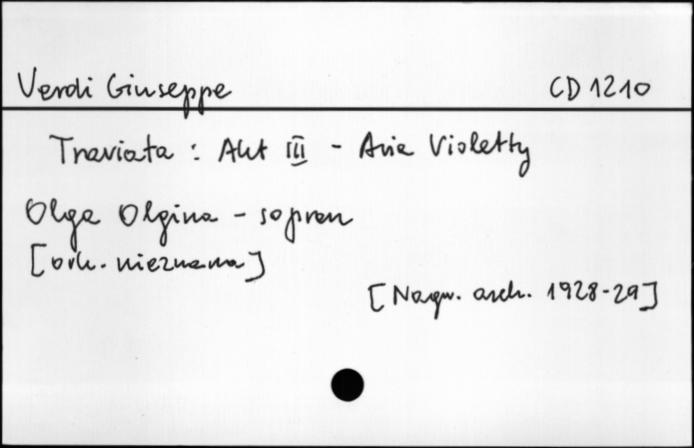 Verdi Giuseppe CD 1210
Traviata : Akt III - Aria Violetty
Olga Olgina - sopran
[ork. nieznana]
[Nagr. arch. 1928-29]